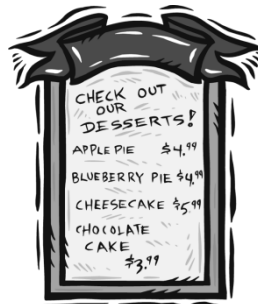 CHECK OUT
OUR
DESSERTS!
APPLE PIE $4.99
BLUEBERRY PIE $4.99
CHEESECAKE $5.99
CHOCOLATE
CAKE
$3.99